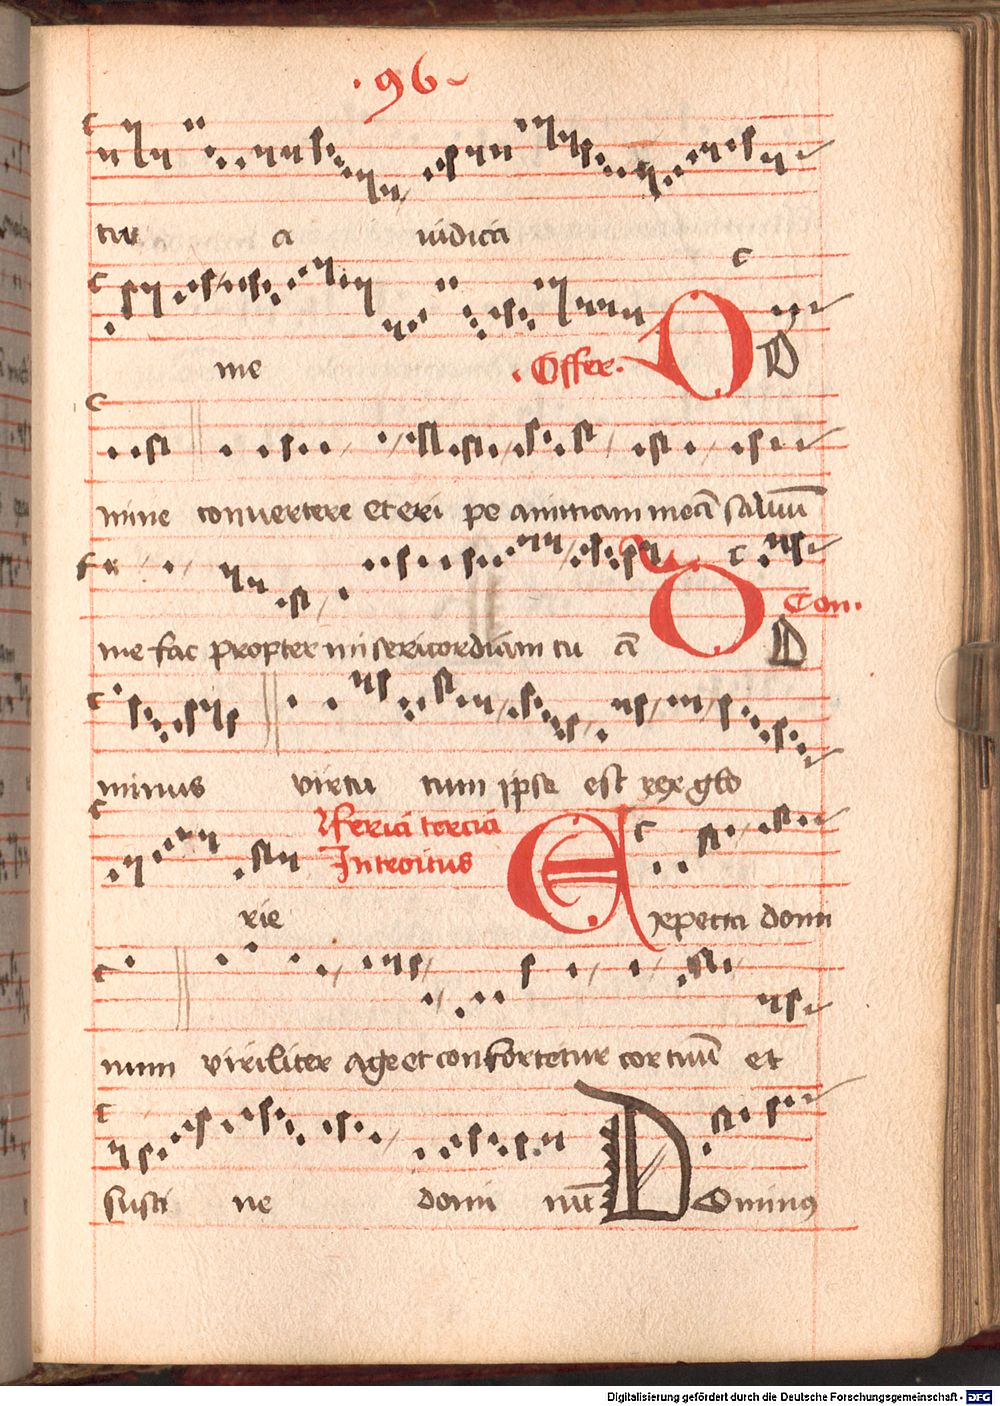 ·96·
tu a iudica
me ·Offer· DD
mine convertere et eri pe animam meā saluū
me fac propter misericordiam tu ā D Com· D
minus virtu tum ipse est rex glo
feria tercia
rie Introitus Expecta domi
num viriliter age et confortetur cor tuū et
susti ne domi nū Dominus
Digitalisierung gefördert durch die Deutsche Forschungsgemeinschaft - DFG